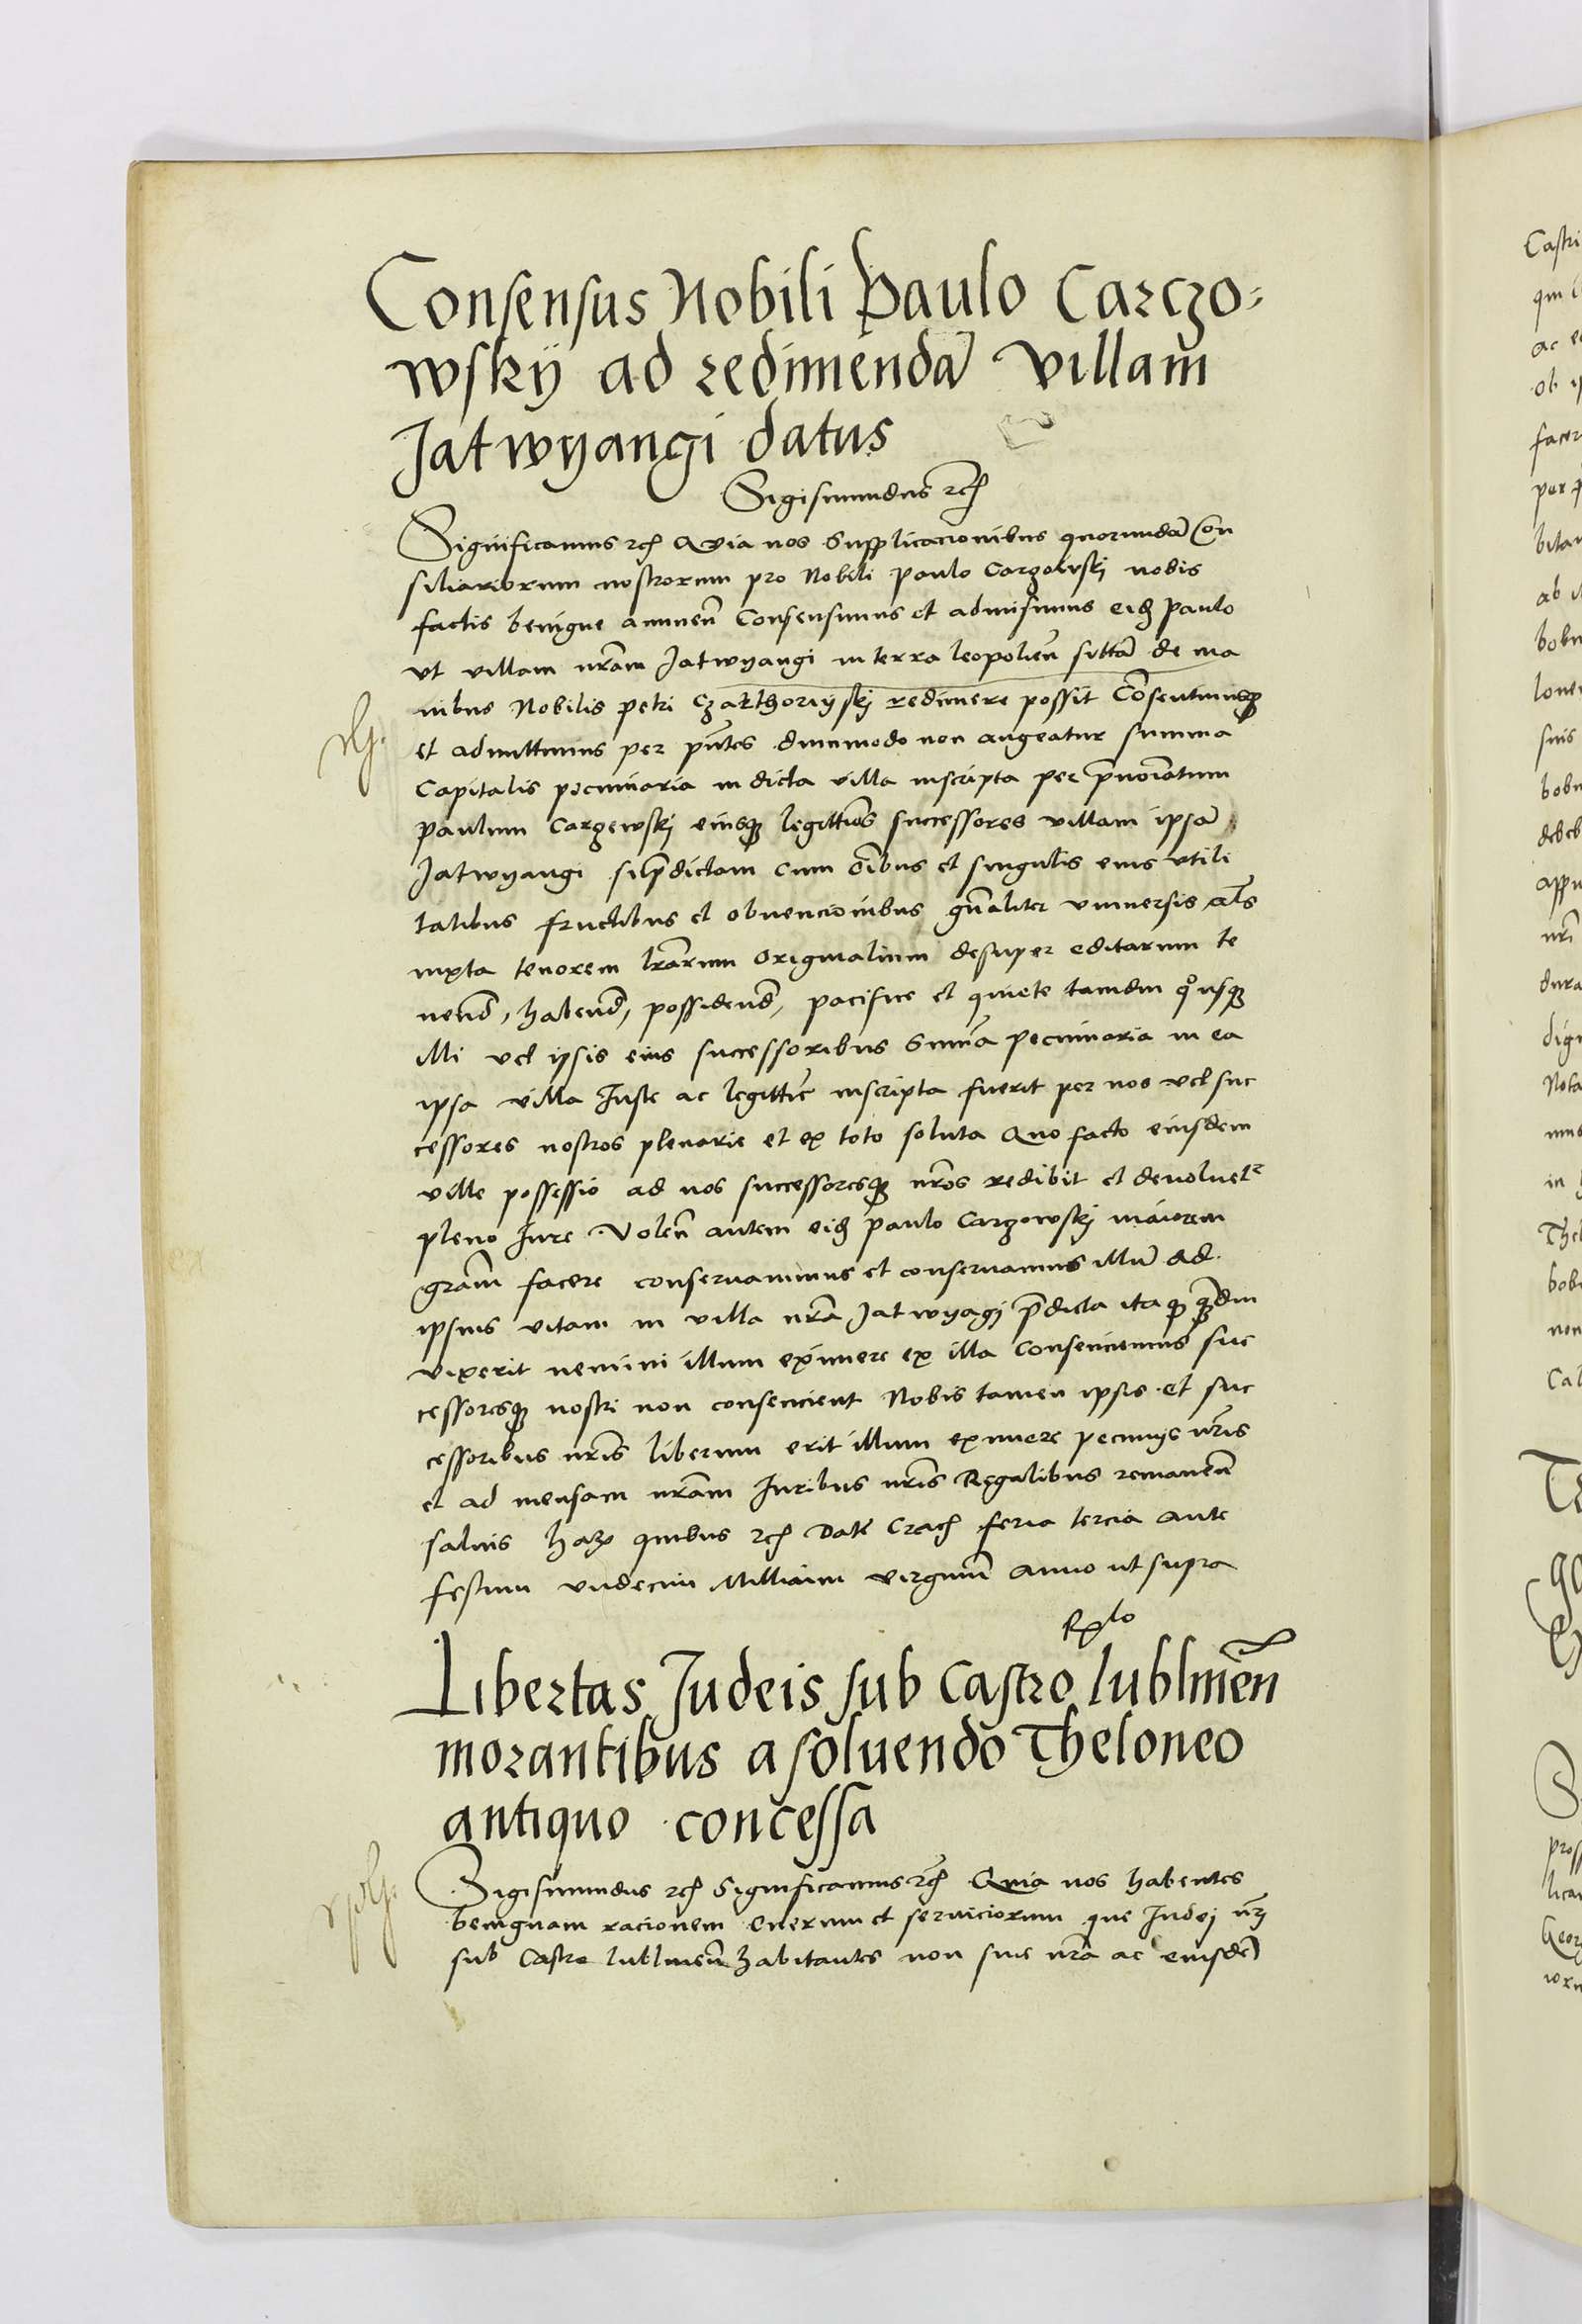 Consensus Nobili Paulo Carczo-
wskij ad redimendā villam
Jatwyangi datus
Sigismundus rcꝫ
Significamus rcꝫ Quia nos Supplicacionibus quorundā Con
siliariorum nostrorum pro Nobili Paulo Carzowskj nobis
factis benigne annuen̄ Consensimus et admisimus eidꝫ Paulo
ut villam nr̄am Jatwyangi in terra leopolien̄ sittā de ma
nibus Nobilis petri Czarthoryskj redimere possit Cōsentimusqꝫ
et admittimus per pn̄tes dummodo non augeatur summa
Capitalis pecuniaria in dicta villa inscripta per p̄noīatum
paulum Carzewskj eiusqꝫ legittīos successores villam ipsā
Jatwyangi sup̄dictam cum oībus et singulis eius utili
tatibus fructibus et obvencionibus gn̄aliter universis al̄s
iuxta tenorem lr̄arum originalium desuper editarum te
nend̄, habend̄, possidend̄, pacifice et quiete tamdiu qͦusqꝫ
illi vel ipsis eius successoribus Sum̄a pecuniaria in ea
ipsa villa Iuste ac legittīe inscripta fuerit per nos vel suc
cessores nostros plenarie et ex toto soluta Quo facto eiusdem
ville possessio ad nos successoresqꝫ nr̄os redibit et devoluetr
pleno Iure Volen̄ autem eidꝫ Paulo Carzowskj maiorem
gr̄am facere conservavimus et conservamus illū ad
ipsius vitam in villa nr̄a Jatwyagj p̄dicta ita qꝫ qm̄diu
vixerit nemini illum eximere ex illa Consenciemus suc
cessoresqꝫ nostri non consencient Nobis tamen ipsis et suc
cessoribus nr̄is liberum erit illum eximere pecunijs nr̄is
et ad mensam nr̄am Iuribus nr̄is Regalibus remanen̄
salvis harꝫ quibus rcꝫ Dat̄ Cracꝫ feria tercia ante
festum undecim Millium virginū Anno ut supra
Libertas Judeis sub Castro lublinen̄
morantibus a soluendo Theloneo
antiquo concessa
Sigismundus rcꝫ Significamus rcꝫ Quia nos habentes
benignam racionem onerum et serviciorum que Iudej nr̄j
sub Castro lublinen̄ habitantes non sine nr̄a ac eiusdē